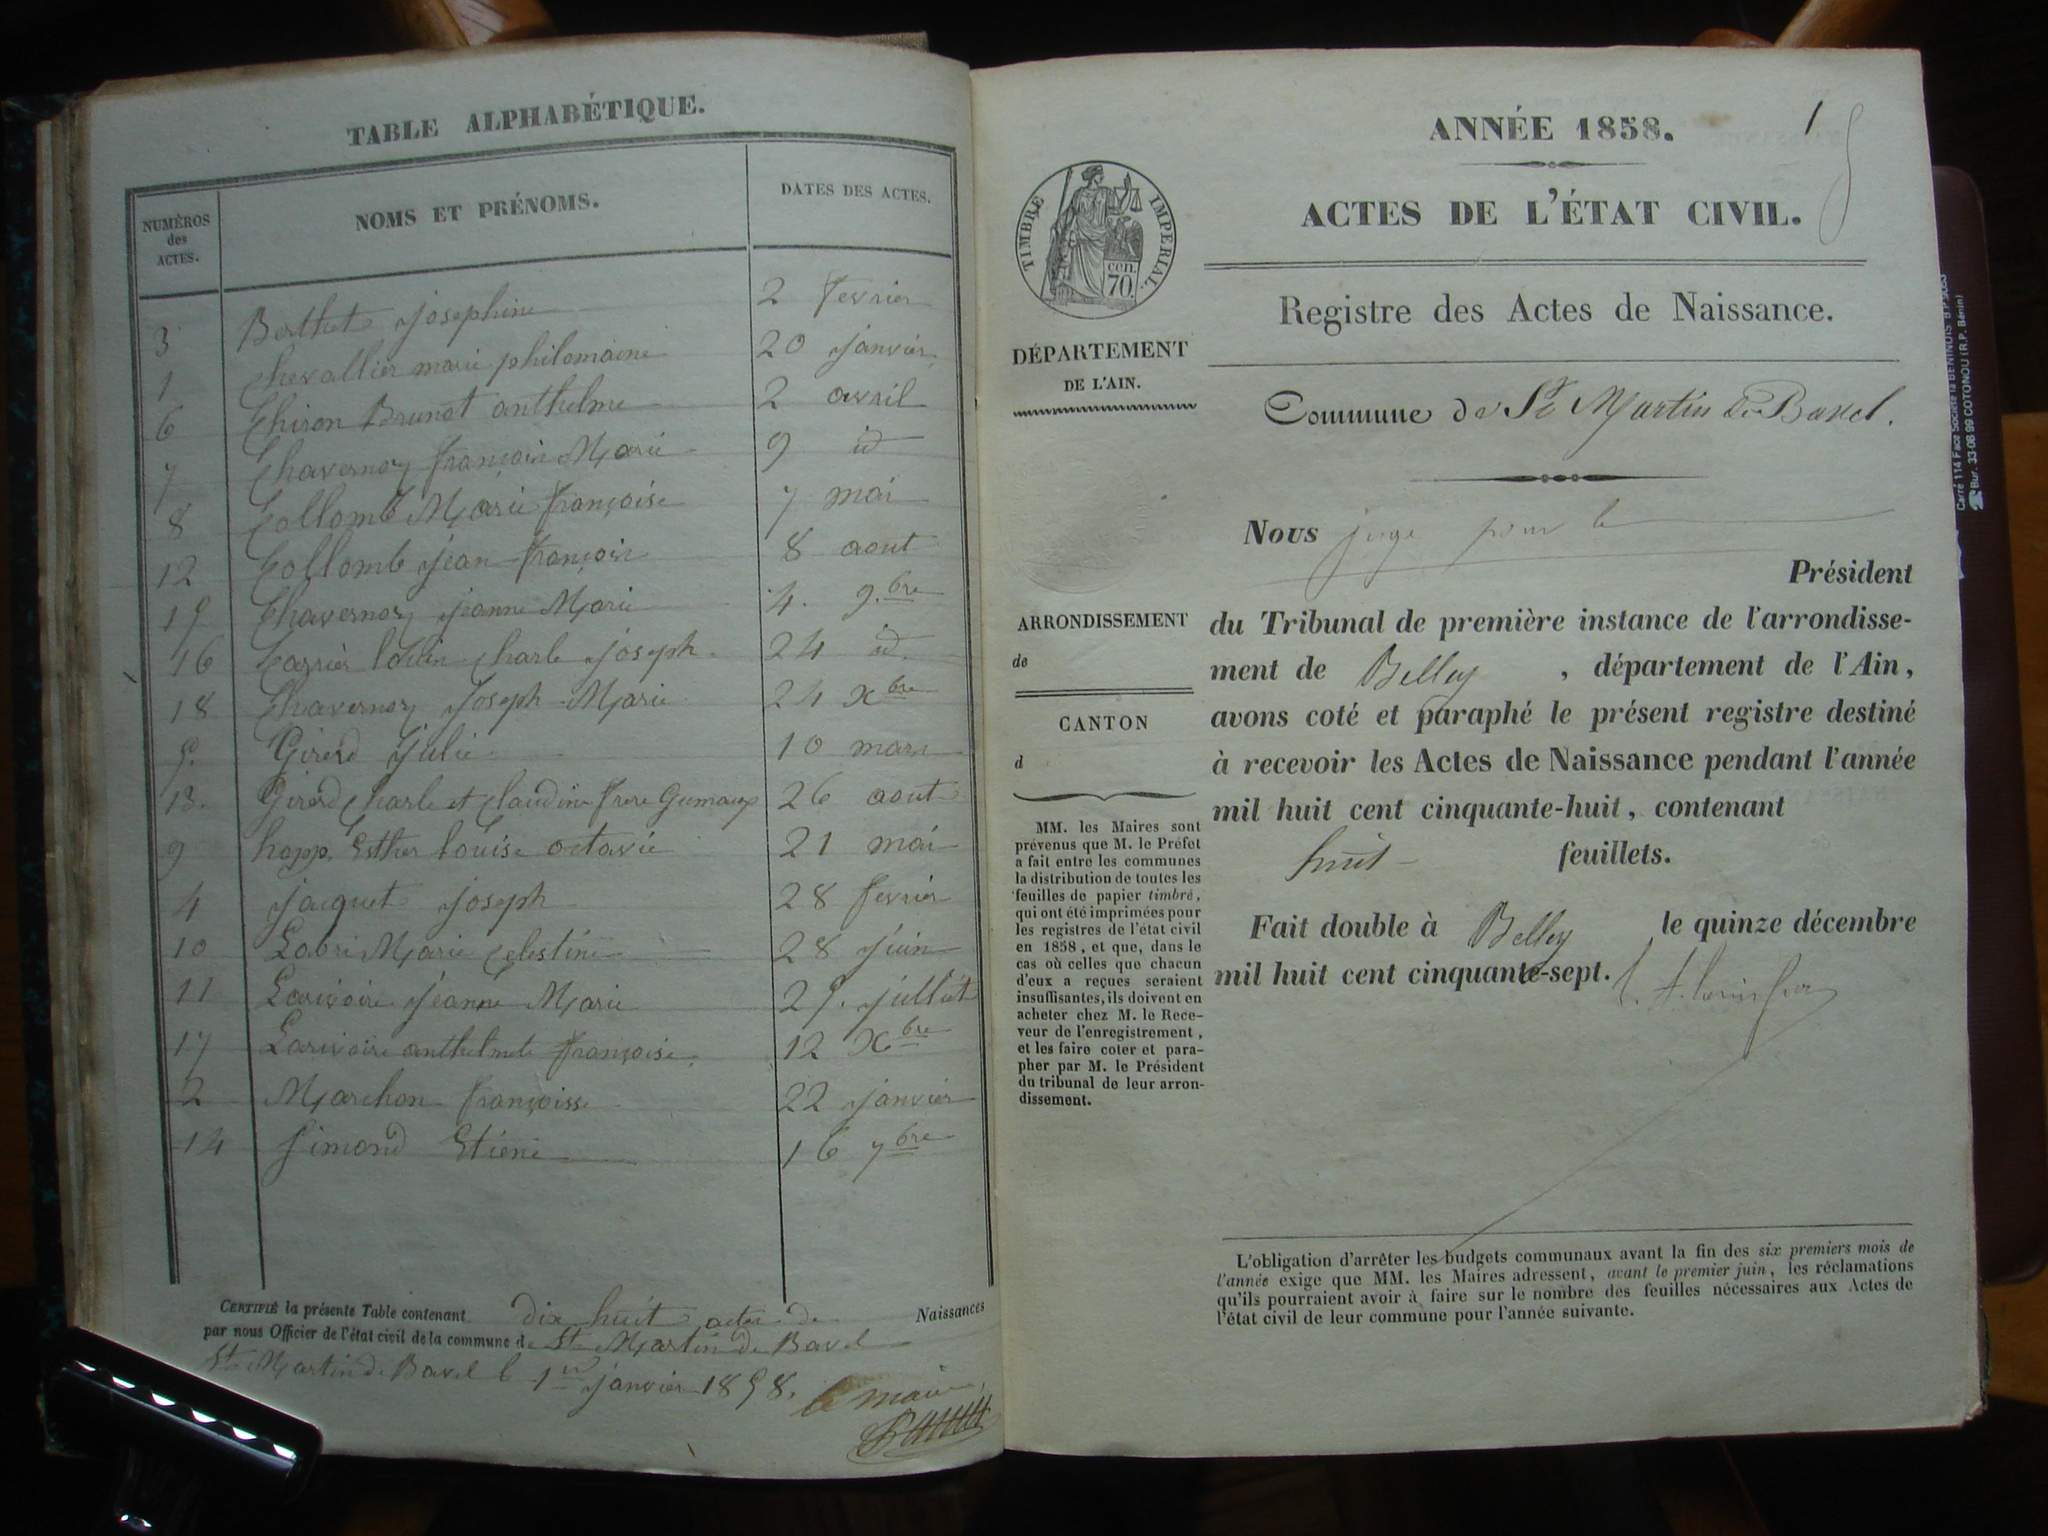 TABLE ALPHABÉTIQUE.
NUMÉROS des ACTES. NOMS ET PRÉNOMS. DATES DES ACTES.
3 Berthet Josephine 2 fevrier
1 Chevallier marie philomaine 20 janvier
6 Chiron Brunet anthelme 2 avril
7 Chavernoz françois Marie 9 id
8 Collomb Marie françoise 7 mai
12 Collomb jean françois 8 aout
15 Chavernoz jeanne Marie 4. 9.bre
16 Carrier louis charle joseph 24 id.
18 Chavernoz Joseph Marie 24 xbre
5. Girerd Julie 10 mars
13. Girerd charle et claudine frere Gumaux 26 aout
9 hopp Esther louise octavie 21 mai
4 jacquet joseph 28 fevrier
10 Labri Marie celestine 28 juin
11 Larivoire jeanne Marie 25. juillet
17 Larivoire anthelmete françoise 12 Xbre
2 Marchon françoise 22 janvier
14 Simond Etiene 16 7bre
CERTIFIÉ la présente Table contenant dix huit actes de Naissances
par nous Officier de l'état civil de la commune de St Martin de Bavel
St Martin de Bavel le 1er janvier 1858. le maire
1
ANNÉE 1858.
ACTES DE L'ÉTAT CIVIL.
TIMBRE IMPERIAL.
cen. 70.
Registre des Actes de Naissance.
DÉPARTEMENT
DE L'AIN.
Commune de St Martin de Bavel.
Nous juge pour le
Président
ARRONDISSEMENT
de
CANTON
d
du Tribunal de première instance de l'arrondisse-
ment de Belley, département de l'Ain,
avons coté et paraphé le présent registre destiné
à recevoir les Actes de Naissance pendant l'année
mil huit cent cinquante-huit, contenant
huit feuillets.
Fait double à Belley le quinze décembre
mil huit cent cinquante-sept.
MM. les Maires sont
prévenus que M. le Préfet
a fait entre les communes
la distribution de toutes les
feuilles de papier timbré,
qui ont été imprimées pour
les registres de l'état civil
en 1858, et que, dans le
cas où celles que chacun
d'eux a reçues seraient
insuffisantes, ils doivent en
acheter chez M. le Rece-
veur de l'enregistrement,
et les faire coter et para-
pher par M. le Président
du tribunal de leur arron-
dissement.
L'obligation d'arrêter les budgets communaux avant la fin des six premiers mois de
l'année exige que MM. les Maires adressent, avant le premier juin, les réclamations
qu'ils pourraient avoir à faire sur le nombre des feuilles nécessaires aux Actes de
l'état civil de leur commune pour l'année suivante.
Carré 114 Face Société la BENINOIS
Bur. 33-06 99 COTONOU (R.P. Bénin)